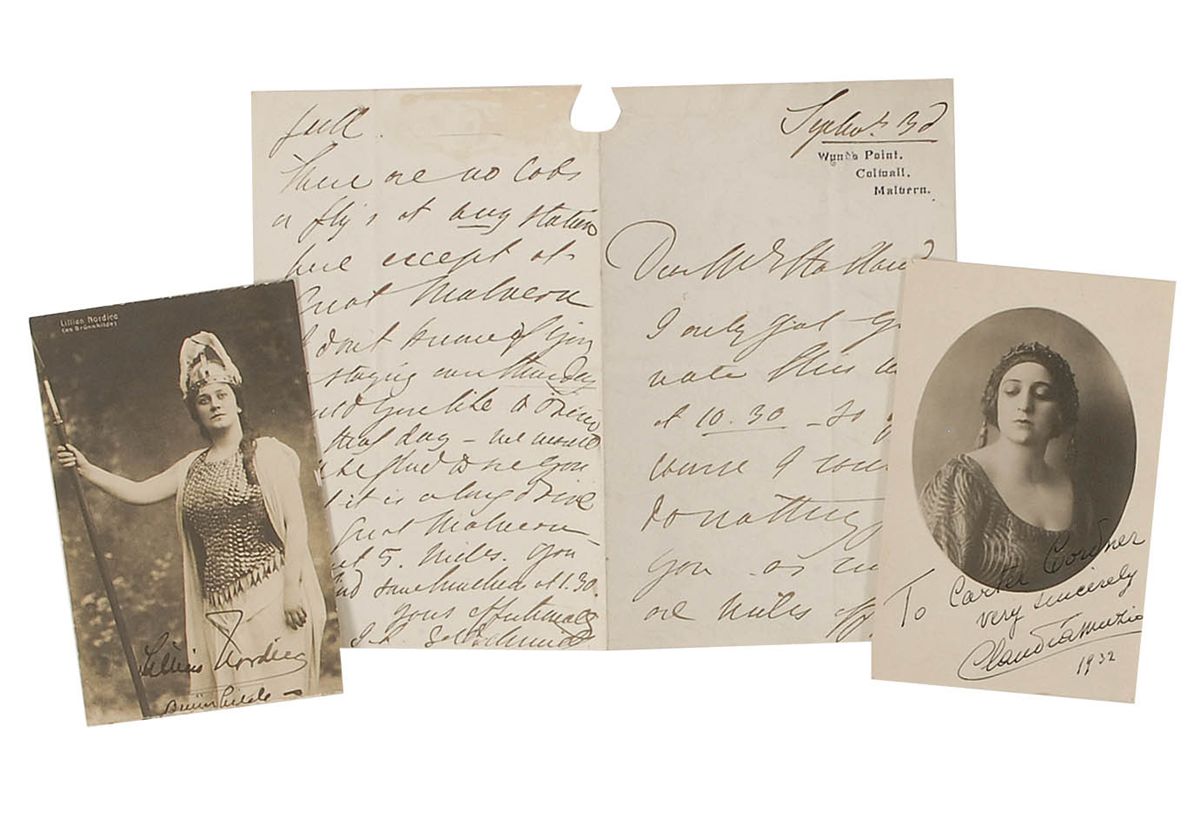 full.
There are no Cabs
or fly's at any station
here except at
Great Malvern
I dont know if you
staying over Thursday
would you like to drive
that day – we would
be glad to see you
it is a long drive
Great Malvern
5. miles. You
find some luncheon at 1.30.
Yours affectionately
Septbr 3d
Wynd's Point.
Colwall.
Malvern.
Dear
I only got
note this
at 10.30 – so
course I
do nothing
you as
are miles off
Lillian Nordica
(as Brünnhilde)
Lillian Nordica
Brünnhilde
To Carter Cordner
very sincerely
Claudia Muzio
1932